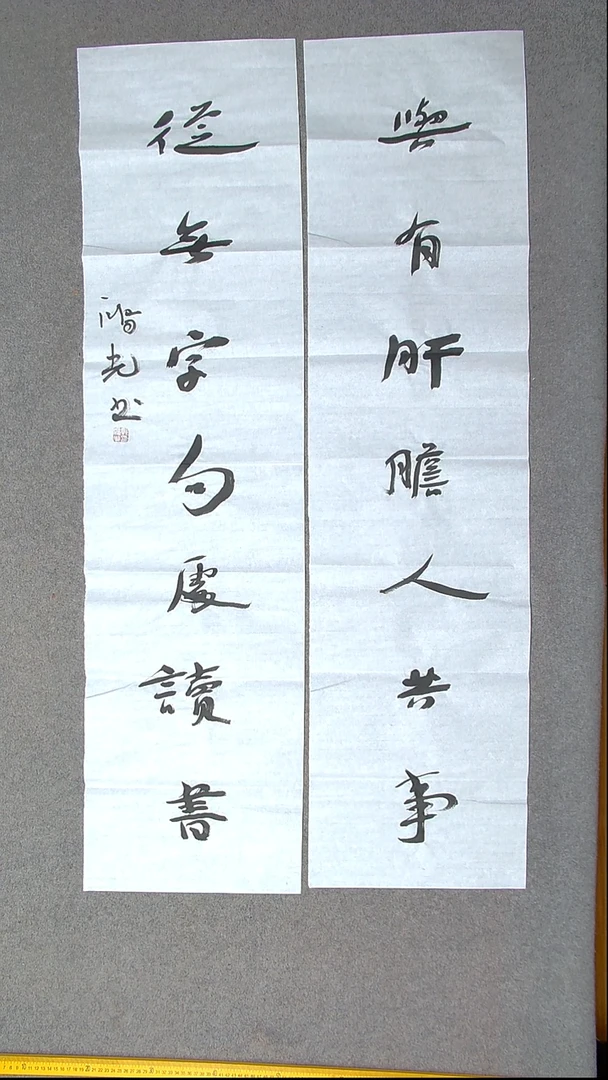 與有肝膽人共事
從無字句處讀書
鴻光书